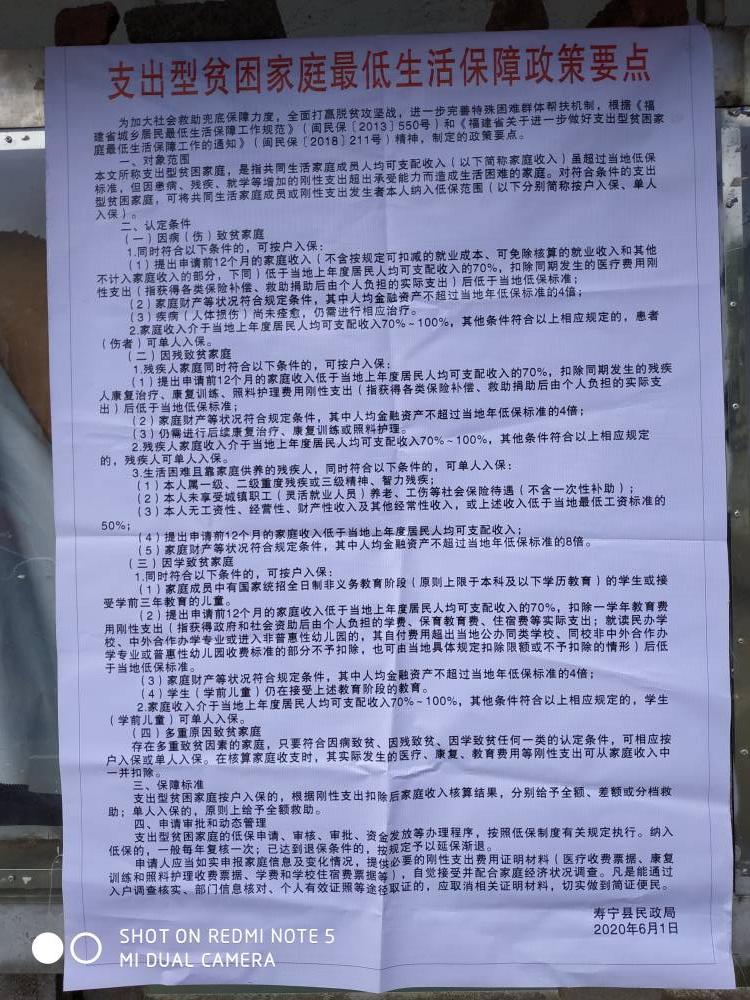 支出型贫困家庭最低生活保障政策要点
为加大社会救助兜底保障力度，全面打赢脱贫攻坚战，进一步完善特殊困难群体帮扶机制，根据《福
建省城乡居民最低生活保障工作规范》（闽民保〔2013〕550号）和《福建省关于进一步做好支出型贫困家
庭最低生活保障工作的通知》（闽民保〔2018〕211号）精神，制定的政策要点。
一、对象范围
本文所称支出型贫困家庭，是指共同生活家庭成员人均可支配收入（以下简称家庭收入）虽超过当地低保
标准，但因患病、残疾、就学等增加的刚性支出超出承受能力而造成生活困难的家庭。对符合条件的支出
型贫困家庭，可将共同生活家庭成员或刚性支出发生者本人纳入低保范围（以下分别简称按户入保、单人
入保）。
二、认定条件
（一）因病（伤）致贫家庭
1.同时符合以下条件的，可按户入保：
（1）提出申请前12个月的家庭收入（不含按规定可扣减的就业成本、可免除核算的就业收入和其他
不计入家庭收入的部分，下同）低于当地上年度居民人均可支配收入的70%，扣除同期发生的医疗费用刚
性支出（指获得各类保险补偿、救助捐助后由个人负担的实际支出）后低于当地低保标准；
（2）家庭财产等状况符合规定条件，其中人均金融资产不超过当地年低保标准的4倍；
（3）疾病（人体损伤）尚未痊愈，仍需进行相应治疗。
2.家庭收入介于当地上年度居民人均可支配收入70%~100%，其他条件符合以上相应规定的，患者
（伤者）可单人入保。
（二）因残致贫家庭
1.残疾人家庭同时符合以下条件的，可按户入保：
（1）提出申请前12个月的家庭收入低于当地上年度居民人均可支配收入的70%，扣除同期发生的残疾
人康复治疗、康复训练、照料护理费用刚性支出（指获得各类保险补偿、救助捐助后由个人负担的实际支
出）后低于当地低保标准；
（2）家庭财产等状况符合规定条件，其中人均金融资产不超过当地年低保标准的4倍；
（3）仍需进行后续康复治疗、康复训练或照料护理。
2.残疾人家庭收入介于当地上年度居民人均可支配收入70%~100%，其他条件符合以上相应规定
的，残疾人可单人入保。
3.生活困难且靠家庭供养的残疾人，同时符合以下条件的，可单人入保：
（1）本人属一级、二级重度残疾或三级精神、智力残疾；
（2）本人未享受城镇职工（灵活就业人员）养老、工伤等社会保险待遇（不含一次性补助）；
（3）本人无工资性、经营性、财产性收入及其他经常性收入，或上述收入低于当地最低工资标准的
50%；
（4）提出申请前12个月的家庭收入低于当地上年度居民人均可支配收入；
（5）家庭财产等状况符合规定条件，其中人均金融资产不超过当地年低保标准的8倍。
（三）因学致贫家庭
1.同时符合以下条件的，可按户入保：
（1）家庭成员中有国家统招全日制非义务教育阶段（原则上限于本科及以下学历教育）的学生或接
受学前三年教育的儿童。
（2）提出申请前12个月的家庭收入低于当地上年度居民人均可支配收入的70%，扣除一学年教育费
用刚性支出（指获得政府和社会资助后由个人负担的学费、保育教育费、住宿费等实际支出；就读民办学
校、中外合作办学专业或进入非普惠性幼儿园的，其自付费用超出当地公办同类学校、同校非中外合作办
学专业或普惠性幼儿园收费标准的部分不予扣除，也可由当地具体规定扣除限额或不予扣除的情形）后低
于当地低保标准。
（3）家庭财产等状况符合规定条件，其中人均金融资产不超过当地年低保标准的4倍；
（4）学生（学前儿童）仍在接受上述教育阶段的教育。
2.家庭收入介于当地上年度居民人均可支配收入70%~100%，其他条件符合以上相应规定的，学生
（学前儿童）可单人入保。
（四）多重原因致贫家庭
存在多重致贫因素的家庭，只要符合因病致贫、因残致贫、因学致贫任何一类的认定条件，可相应按
户入保或单人入保。在核算家庭收支时，其实际发生的医疗、康复、教育费用等刚性支出可从家庭收入中
一并扣除。
三、保障标准
支出型贫困家庭按户入保的，根据刚性支出扣除后家庭收入核算结果，分别给予全额、差额或分档救
助；单人入保的，原则上给予全额救助。
四、申请审批和动态管理
支出型贫困家庭的低保申请、审核、审批、资金发放等办理程序，按照低保制度有关规定执行。纳入
低保的，一般每年复核一次；已达到退保条件的，按规定予以延保渐退。
申请人应当如实申报家庭信息及变化情况，提供必要的刚性支出费用证明材料（医疗收费票据、康复
训练和照料护理收费票据、学费和学校住宿费票据等），自觉接受并配合家庭经济状况调查。凡是能通过
入户调查核实、部门信息核对、个人有效证照等途径取证的，应取消相关证明材料，切实做到简证便民。
寿宁县民政局
2020年6月1日
SHOT ON REDMI NOTE 5
MI DUAL CAMERA